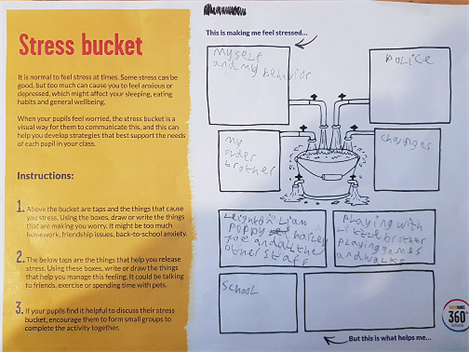 Stress bucket
It is normal to feel stress at times. Some stress can be
good, but too much can cause you to feel anxious or
depressed, which might affect your sleeping, eating
habits and general wellbeing.
When your pupils feel worried, the stress bucket is a
visual way for them to communicate this, and this can
help you develop strategies that best support the needs
of each pupil in your class.
Instructions:
1. Above the bucket are taps and the things that cause
you stress. Using the boxes, draw or write the things
that are making you worry. It might be too much
homework, friendship issues, back-to-school anxiety.
2. The below taps are the things that help you release
stress. Using these boxes, write or draw the things
that help you manage this feeling. It could be talking
to friends, exercise or spending time with pets.
3. If your pupils find it helpful to discuss their stress
bucket, encourage them to form small groups to
complete the activity together.
This is making me feel stressed...
myself
and my behavior
police
my
order
brother
changes
Leighton Liam
poppy harley
Joe and all the
other staff
Playing with
little brother
playing games
and walks
SCHOOL
But this is what helps me...
360°